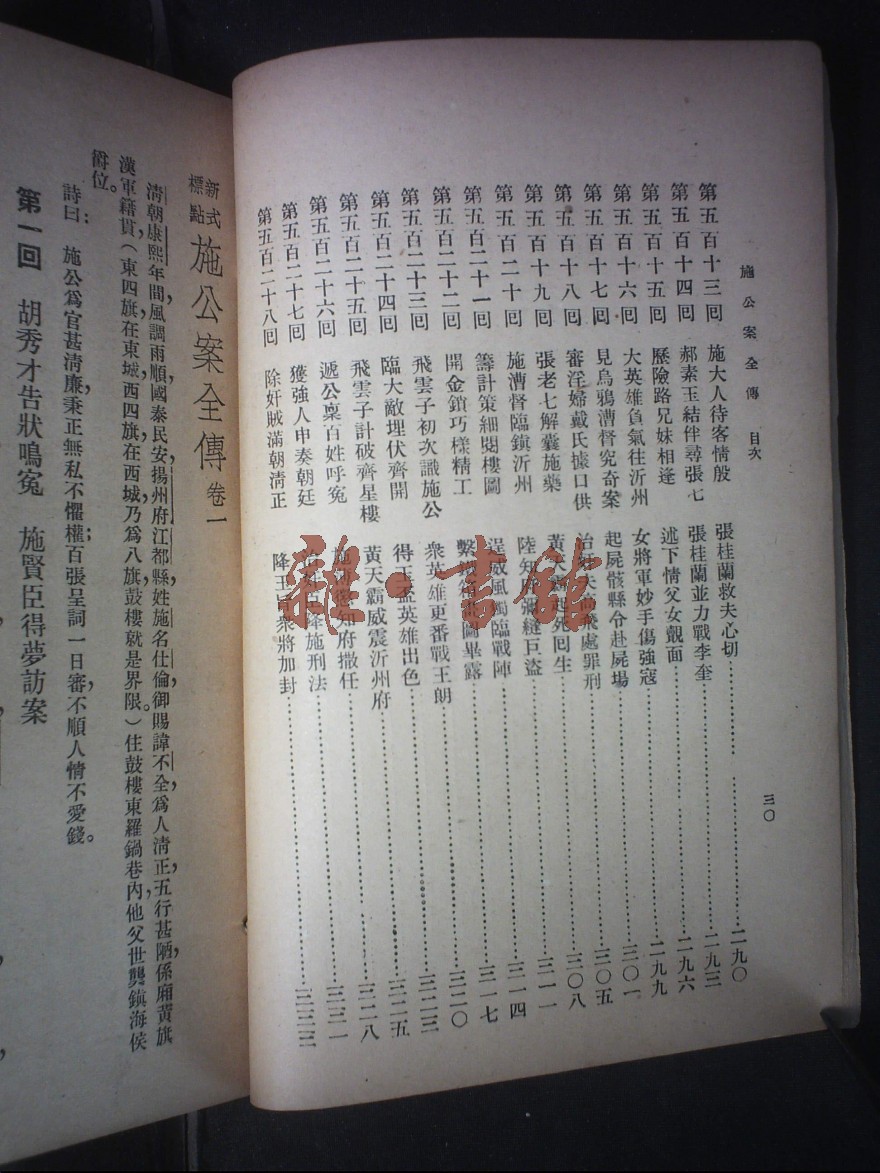 施公案全傳 目次
三〇
第五百十三回 施大人待客情殷 張桂蘭救夫心切 二九〇
第五百十四回 郝素玉結伴尋張七 張桂蘭並力戰李奎 二九三
第五百十五回 歷險路兄妹相逢 述下情父女覿面 二九六
第五百十六回 大英雄負氣往沂州 女將軍妙手傷強寇 二九九
第五百十七回 見烏鴉漕督究奇案 起屍骸縣令赴屍場 三〇一
第五百十八回 審淫婦戴氏據口供 治奸夫 處罪刑 三〇五
第五百十九回 張老七解囊施藥 黃天霸起死囘生 三〇八
第五百二十回 施漕督臨鎮沂州 陸知府彌縫巨盜 三一一
第五百二十一回 籌計策細閱樓圖 逞威風獨臨戰陣 三一四
第五百二十二回 開金鎖巧樣精工 圖畢露 三一七
第五百二十三回 飛雲子初次識施公 衆英雄更番戰王朗 三二〇
第五百二十四回 臨大敵埋伏齊開 得玉盃英雄出色 三二三
第五百二十五回 飛雲子計破齊星樓 黃天霸威震沂州府 三二五
第五百二十六回 遞公稟百姓呼冤 知府撤任 三二八
第五百二十七回 獲強人申奏朝廷 降施刑法 三三一
第五百二十八回 除奸賊滿朝清正 降王 衆將加封 三三三
新式標點 施公案全傳 卷一
清朝康熙年間，風調雨順，國泰民安，揚州府江都縣，姓施名仕倫，御賜諱不全，爲人清正，五行甚陋，係廂黃旗
漢軍籍貫，（東四旗在東城，西四旗在西城，乃爲八旗，鼓樓就是界限。）住鼓樓東羅鍋巷內，他父世襲鎮海侯
爵位。
詩曰：施公爲官甚清廉，秉正無私不懼權；百張呈詞一日審，不順人情不愛錢。
第一回 胡秀才告狀鳴冤 施賢臣得夢訪案
雜·書館